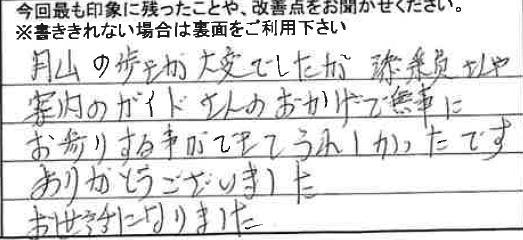 今回最も印象に残ったことや、改善点をお聞かせください。
※書ききれない場合は裏面をご利用下さい
月山の歩きが大変でしたが 添乗員さんや
案内のガイドさんのおかげで無事に
お参りする事ができてうれしかったです
ありがとうございました
お世話になりました